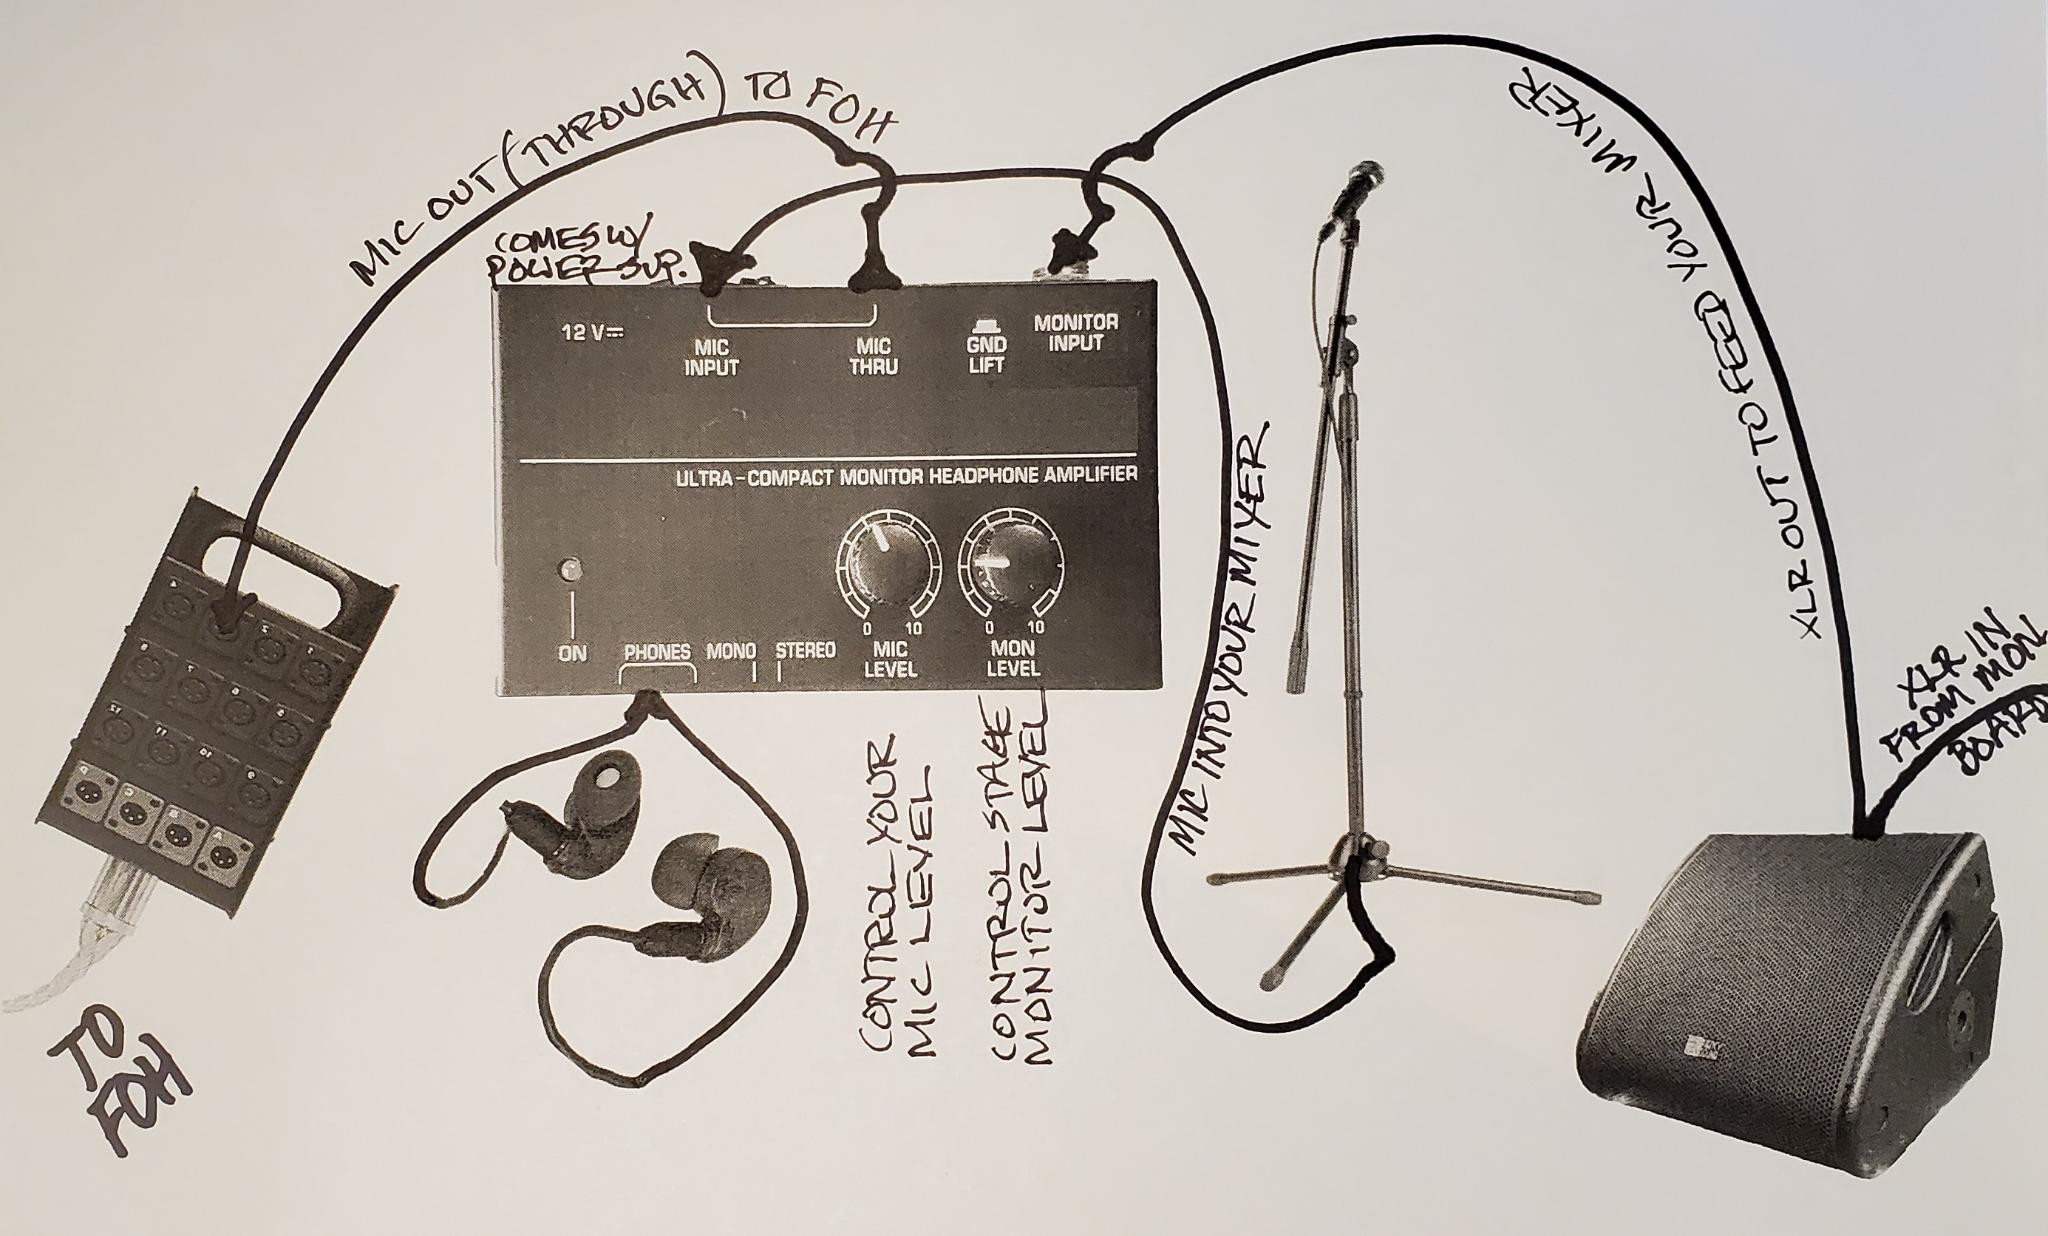 MIC OUT (THROUGH) TO FOH
COMES W/
POWER SUP.
XLR OUT TO FEED YOUR MIXER
12 V
MIC
INPUT
MIC
THRU
GND
LIFT
MONITOR
INPUT
ULTRA-COMPACT MONITOR HEADPHONE AMPLIFIER
ON
PHONES
MONO
STEREO
0 10
MIC
LEVEL
0 10
MON
LEVEL
MIC INTO YOUR MIXER
XLR IN
FROM MON
BOARD
CONTROL YOUR
MIC LEVEL
CONTROL STAGE
MONITOR LEVEL
TO
FOH